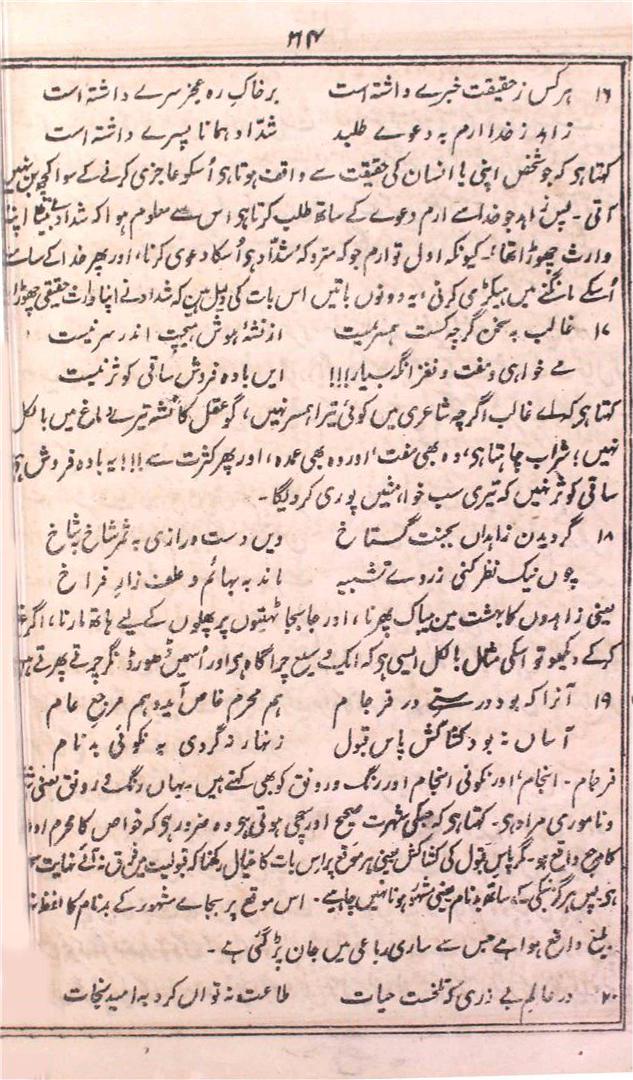 ۲۶۴
۱۶ ہرکس ز حقیقت خبرے داشتہ است برخاکِ رہِ عجز سرے داشتہ است
زاہد ز خدا ارم بہ دعوے طلبد شدّاد ہمانا پسرے داشتہ است
کہتا ہو کہ جو شخص اپنی یا انسان کی حقیقت سے واقف ہوتا ہو اُسکو عاجزی کرنے کے سوا کچھ بن نہیں
آتی۔ پس زاہد جو خدا سے ارم دعوے کے ساتھ طلب کرتا ہو اس سے معلوم ہوا کہ شداد نے بیٹا اپنا
وارث چھوڑا تھا۔ کیونکہ اول تو ارم جو کہ متروکۂ شدّاد ہو اُسکا دعوی کرنا، اور پھر خدا کے سات
اُسکے مانگنے میں ہیکڑی کرنی، یہ دونوں باتیں اس بات کی دلیل ہین کہ شداد نے اپنا وارث حقیقی چھوڑا
۱۷ غالب بہ سخن گرچہ کست ہمسر نیست از نشۂ ہوش ہیچت اندر سر نیست
مے خواہی و مفت و نغز وانگہ بسیار!!! ایں بادہ فروش ساقی کوثر نیست
کہتا ہو کہ اے غالب اگرچہ شاعری میں کوئی تیرا ہمسر نہیں، گو عقل کا نشہ تیرے دماغ میں بالکل
نہیں؛ شراب چاہتا ہو، وہ بھی مفت، اور وہ بھی عمدہ، اور پھر کثرت سے!!! یہ بادہ فروش ہو
ساقی کوثر نہیں کہ تیری سب خواہشیں پوری کردیگا۔
۱۸ گردیدن زاہداں بجنت گستاخ ویں دست درازی بہ ثمر شاخ بشاخ
چوں نیک نظر کنی ز روے تشبیہ ماند بہ بہائم و علف زار فراخ
یعنی زاہدوں کا بہشت مین بیباک پھرنا، اور جابجا ٹہنیوں پر پھلوں کے لیے ہاتھ مارنا، اگر غور
کرکے دیکھو تو اسکی مثال بالکل ایسی ہو کہ ایک وسیع چراگاہ ہو اور اُسمیں ڈھور ڈنگر چرتے پھرتے ہیں
۱۹ آنرا کہ بود درستے در فرجام ہم محرم خاص آید وہم مرجع عام
آساں نبود کشاکش پاس قبول زنہار نگردی بہ نکوئی بدنام
فرجام۔ انجام، اور نکوئی انجام اور رنگ و رونق کو بھی کہتے ہیں۔ یہاں رنگ و رونق یعنی
و ناموری مراد ہو۔ کہتا ہو کہ جسکی شہرت صحیح اور سچی ہوتی ہو وہ ضرور ہو کہ خواص کا محرم اور
کا مرجع واقع ہو۔ مگر پاس قبول کی کشاکش یعنی ہر موقع پر اِس بات کا خیال رکھنا کہ قبولیت مین فرق نہ آئے نہایت
ہو۔ پس ہرگز نیکی کے ساتھ بدنام یعنی مشہور ہونا نہیں چاہیے۔ اس موقع پر بجاے مشہور کے بدنام کا لفظ
بلیغ واقع ہوا ہے جس سے ساری رباعی میں جان پڑ گئی ہے۔
۲۰ در عالمِ بے زری کہ تلخست حیات طاعت نہ تواں کرد بہ امید نجات